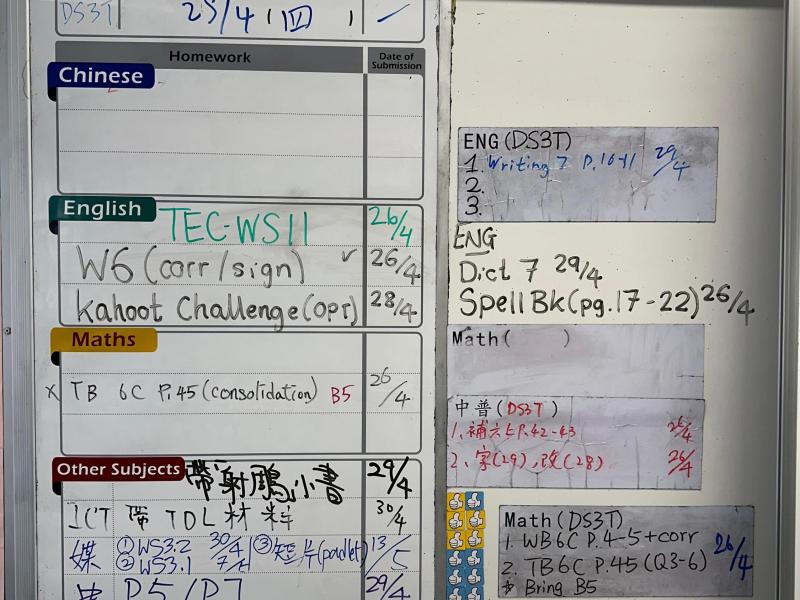 DS3T 25/4 (四) ✓
Homework Date of Submission
Chinese
English
TEC-WS11 26/4
W6 (corr/sign) ✓ 26/4
Kahoot Challenge (opr) 28/4
Maths
x TB 6C P.45 (consolidation) B5 26/4
Other Subjects
帶射鵰小書 29/4
ICT 帶 TDL 材料 30/4
媒 ① WS3.2 30/4 ③ 短片 (padlet) 13/5
② WS3.1 7/5
P5/P7 29/4
ENG (DS3T)
1. Writing 7 P.10-11 29/4
2.
3.
ENG
Dict 7 29/4
Spell Bk (pg. 17-22) 26/4
Math ( )
中普 (DS3T)
1、補六上P.42-43 26/4
2、家(29),改(28) 26/4
Math (DS3T)
1. WB6C P.4-5+corr
2. TB6C P.45 (Q3-6) 26/4
* Bring B5